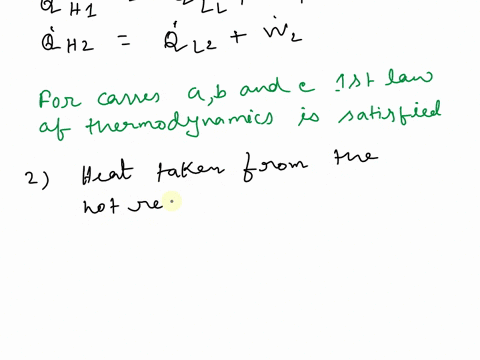 Q̇H1 = Q̇L1 +
Q̇H2 = Q̇L2 + ẇ2
For casses a, b and c 1st law
of thermodynamics is satisfied
2) Heat taken from the
hot re